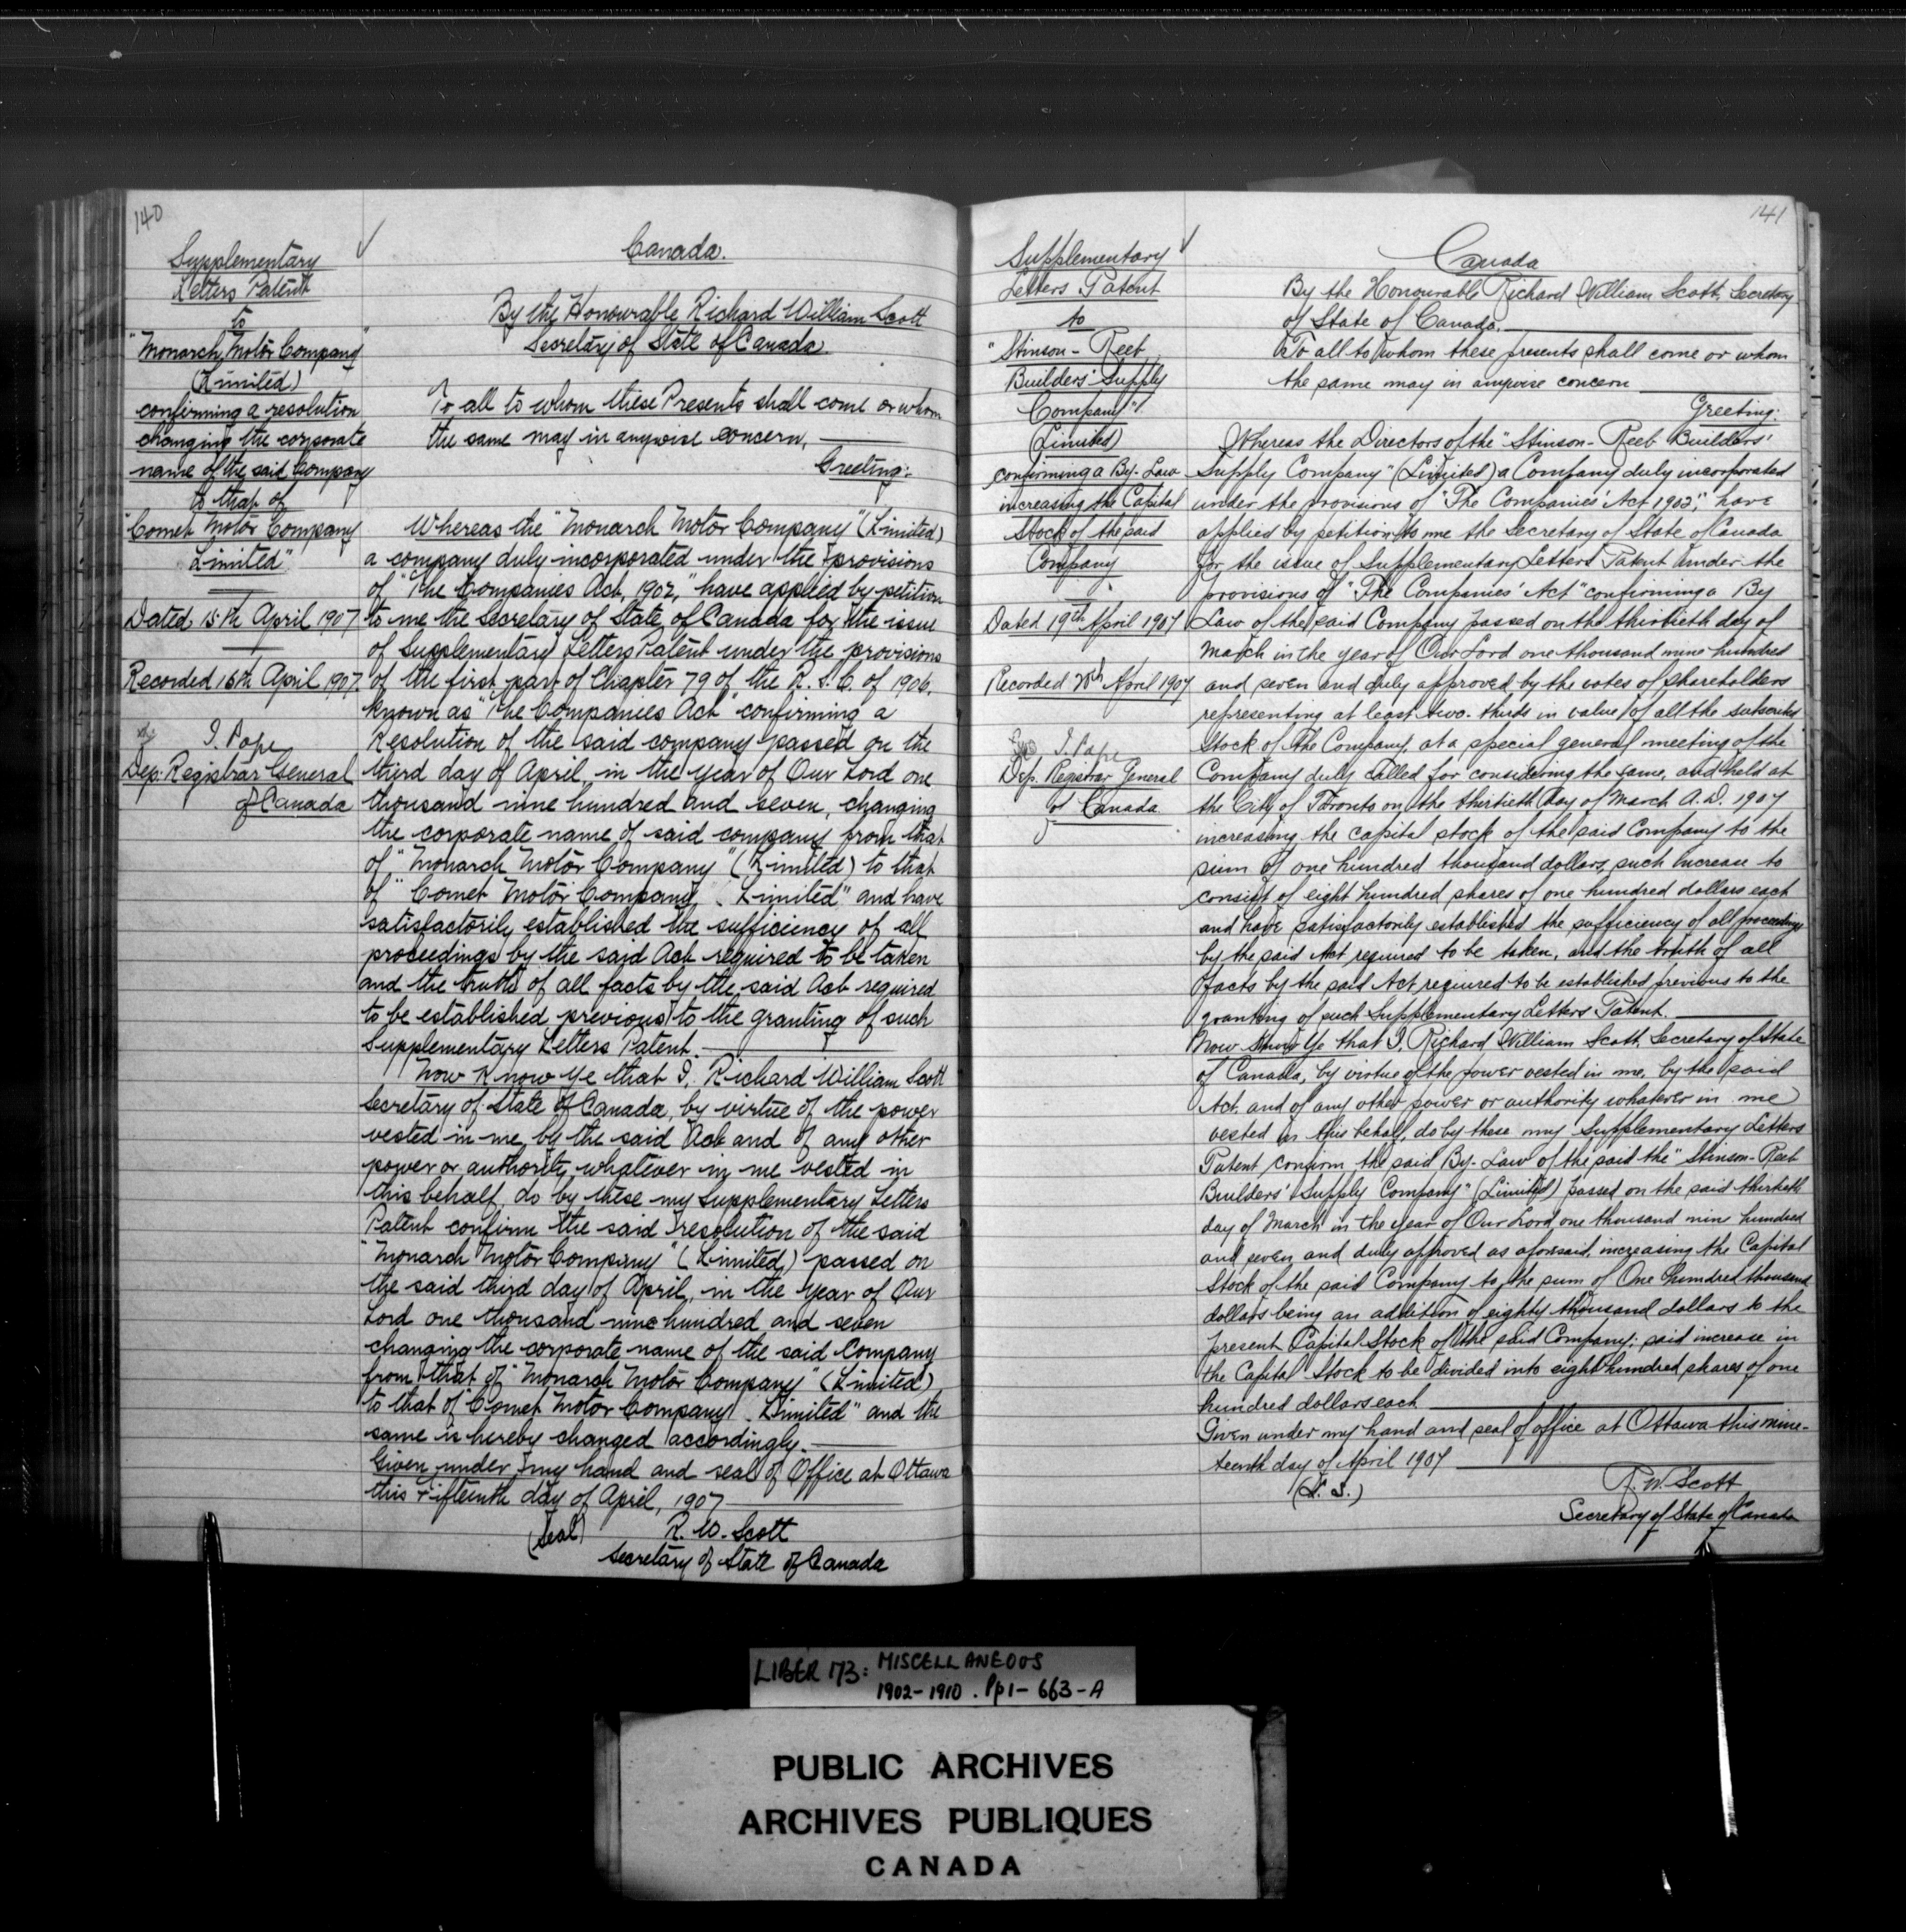 140
Supplementary
Letters Patent
to
"Monarch Motor Company"
(Limited)
confirming a resolution
changing the corporate
name of the said Company
to that of
"Comet Motor Company
Limited"
Dated 15th April 1907
Recorded 16th April 1907.
J. Pope
Dep: Registrar General
of Canada
Canada.
By the Honourable Richard William Scott
Secretary of State of Canada.
To all to whom these Presents shall come or whom
the same may in anywise concern,
Greeting:
Whereas the "Monarch Motor Company" (Limited)
a company duly incorporated under the provisions
of "The Companies Act, 1902," have applied by petition
to me the Secretary of State of Canada for the issue
of Supplementary Letters Patent under the provisions
of the first part of Chapter 79 of the R. S. C. of 1906.
known as "The Companies Act" confirming a
Resolution of the said company passed on the
third day of April, in the year of Our Lord one
thousand nine hundred and seven, changing
the corporate name of said company from that
of "Monarch Motor Company" (Limited) to that
of "Comet Motor Company, Limited" and have
satisfactorily established the sufficiency of all
proceedings by the said Act required to be taken
and the truth of all facts by the said Act required
to be established previous to the granting of such
Supplementary Letters Patent.
Now Know Ye that I, Richard William Scott
Secretary of State of Canada, by virtue of the power
vested in me by the said Act and of any other
power or authority whatever in me vested in
this behalf, do by these my Supplementary Letters
Patent confirm the said resolution of the said
"Monarch Motor Company" (Limited) passed on
the said third day of April, in the year of Our
Lord one thousand nine hundred and seven
changing the corporate name of the said Company
from that of "Monarch Motor Company" (Limited)
to that of "Comet Motor Company, Limited" and the
same is hereby changed accordingly.
Given under my hand and seal of Office at Ottawa
this fifteenth day of April, 1907
(Seal) R. W. Scott
Secretary of State of Canada
141
Supplementary
Letters Patent
to
"Stinson-Reeb
Builders' Supply
Company"
(Limited)
confirming a By-Law
increasing the Capital
Stock of the said
Company
Dated 19th April 1907
Recorded 20th April 1907
J. Pope
Dep. Registrar General
of Canada
Canada
By the Honourable Richard William Scott, Secretary
of State of Canada.
To all to whom these presents shall come or whom
the same may in anywise concern
Greeting:
Whereas the Directors of the "Stinson-Reeb Builders'
Supply Company" (Limited) a Company duly incorporated
under the provisions of "The Companies' Act 1902," have
applied by petition to me the Secretary of State of Canada
for the issue of Supplementary Letters Patent under the
provisions of "The Companies' Act" confirming a By
Law of the said Company passed on the thirtieth day of
March in the year of Our Lord one thousand nine hundred
and seven and duly approved by the votes of shareholders
representing at least two-thirds in value of all the subscribed
Stock of the Company, at a special general meeting of the
Company duly called for considering the same, and held at
the City of Toronto on the thirtieth day of March A.D. 1907
increasing the capital stock of the said Company to the
sum of one hundred thousand dollars, such increase to
consist of eight hundred shares of one hundred dollars each
and have satisfactorily established the sufficiency of all proceedings
by the said Act required to be taken, and the truth of all
facts by the said Act required to be established previous to the
granting of such Supplementary Letters Patent.
Now Know Ye that I, Richard William Scott, Secretary of State
of Canada, by virtue of the power vested in me, by the said
Act, and of any other power or authority whatever in me
vested in this behalf, do by these my Supplementary Letters
Patent confirm the said By-Law of the said the "Stinson-Reeb
Builders' Supply Company" (Limited) passed on the said thirtieth
day of March in the year of Our Lord one thousand nine hundred
and seven and duly approved as aforesaid, increasing the Capital
Stock of the said Company to the sum of One hundred thousand
dollars being an addition of eighty thousand dollars to the
present Capital Stock of the said Company; said increase in
the Capital Stock to be divided into eight hundred shares of one
hundred dollars each
Given under my hand and seal of office at Ottawa this nine-
teenth day of April 1907
(L. S.) R. W. Scott
Secretary of State of Canada
LIBER 173: MISCELLANEOUS
1902-1910. Pp 1-663-A
PUBLIC ARCHIVES
ARCHIVES PUBLIQUES
CANADA